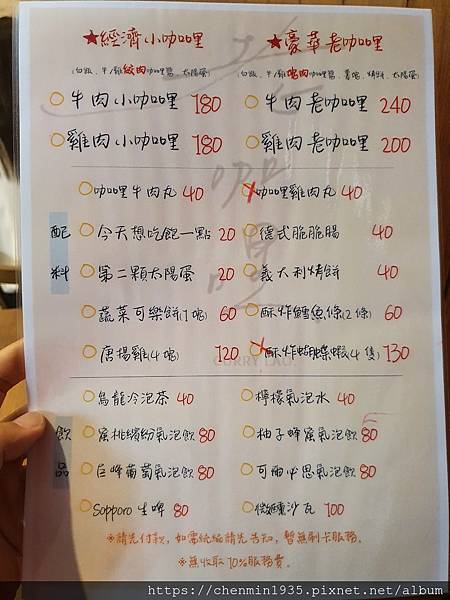 ★經濟小咖哩
★豪華老咖哩
(白飯、牛/雞絞肉咖哩醬、太陽蛋)
牛肉小咖哩 180
牛肉老咖哩 240
雞肉小咖哩 180
雞肉老咖哩 200
配料
咖哩牛肉丸 40
咖哩雞肉丸 40
今天想吃飽一點 20
德式脆脆腸 40
第二顆太陽蛋 20
義大利烤餅 40
蔬菜可樂餅(1塊) 60
酥炸鱈魚條(2條) 60
唐揚雞(4塊) 120
酥炸蝴蝶蝦(4隻) 130
CURRY LAO
飲品
烏龍冷泡茶 40
檸檬氣泡水 40
蜜桃繽紛氣泡飲 80
柚子蜂蜜氣泡飲 80
巨峰葡萄氣泡飲 80
可爾必思氣泡飲 80
Sapporo 生啤 80
微醺沙瓦 100
※請先付款，如需統編請先告知，暫無刷卡服務。
※無收取10%服務費。
https://chenmin1935.pixnet.net/album